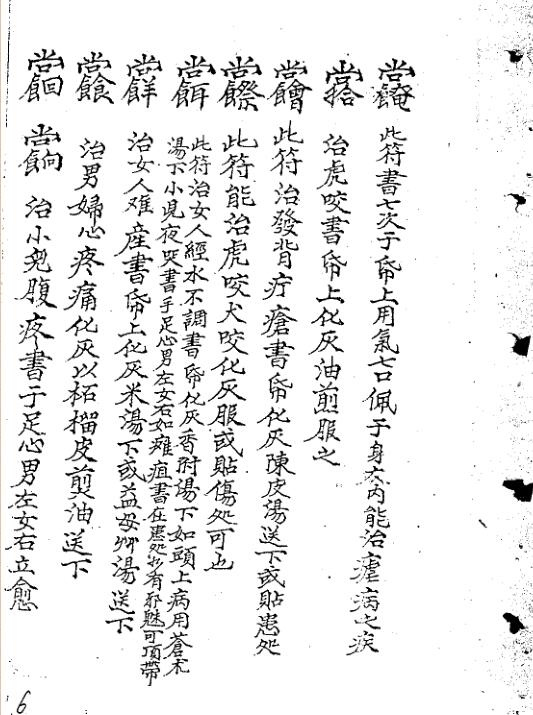 此符書七次于帋上用氣七口佩于身衣内能治瘧病之疾
治虎咬書帋上化灰油煎服之
此符治發背疔瘡書帋化灰陳皮湯送下或貼患処
此符能治虎咬犬咬化灰服或貼傷処可也
此符治女人經水不調書帋化灰香附湯下如頭上病用蒼朮
湯下小児夜哭書手足心男左女右如癰疽書在患処如有邪魅可項帶
治女人难產書帋上化灰米湯下或益母艸湯送下
治男婦心疼痛化灰以柘榴皮煎油送下
治小兒腹疼書于足心男左女右立愈
6